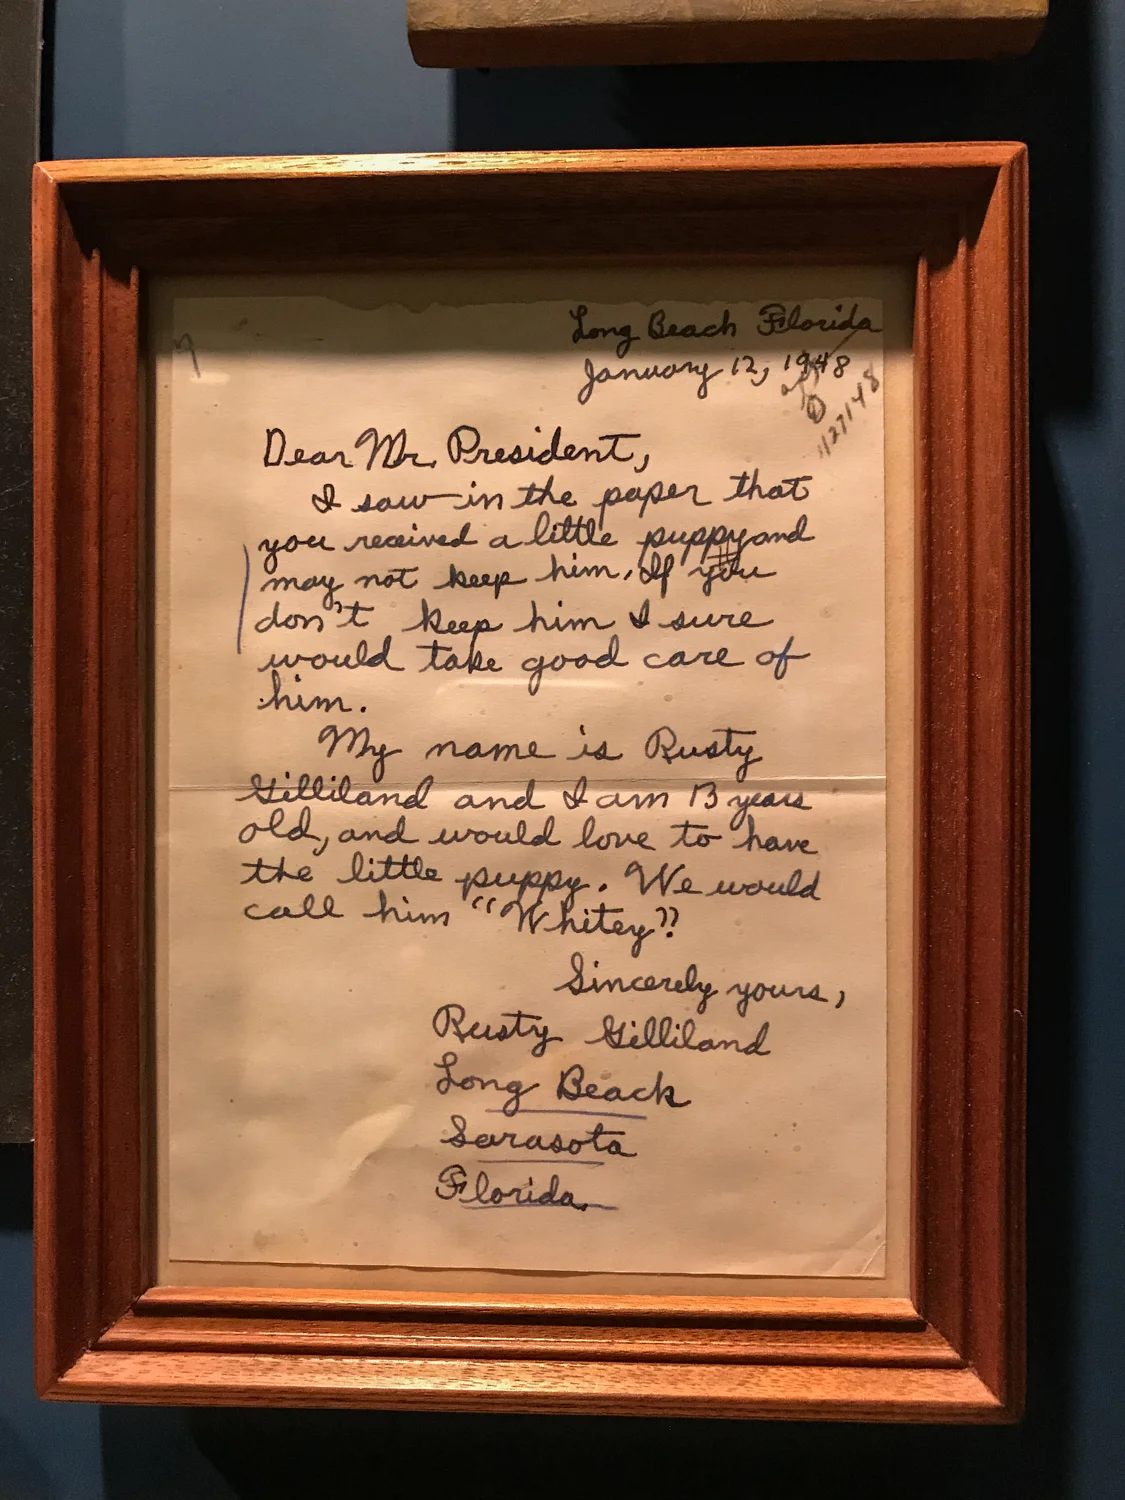 Long Beach Florida
January 12, 1948
1127148
Dear Mr. President,
I saw in the paper that
you received a little puppy and
may not keep him. If you
don't keep him I sure
would take good care of
him.
My name is Rusty
Gilliland and I am 13 years
old, and would love to have
the little puppy. We would
call him "Whitey".
Sincerely yours,
Rusty Gilliland
Long Beach
Sarasota
Florida.